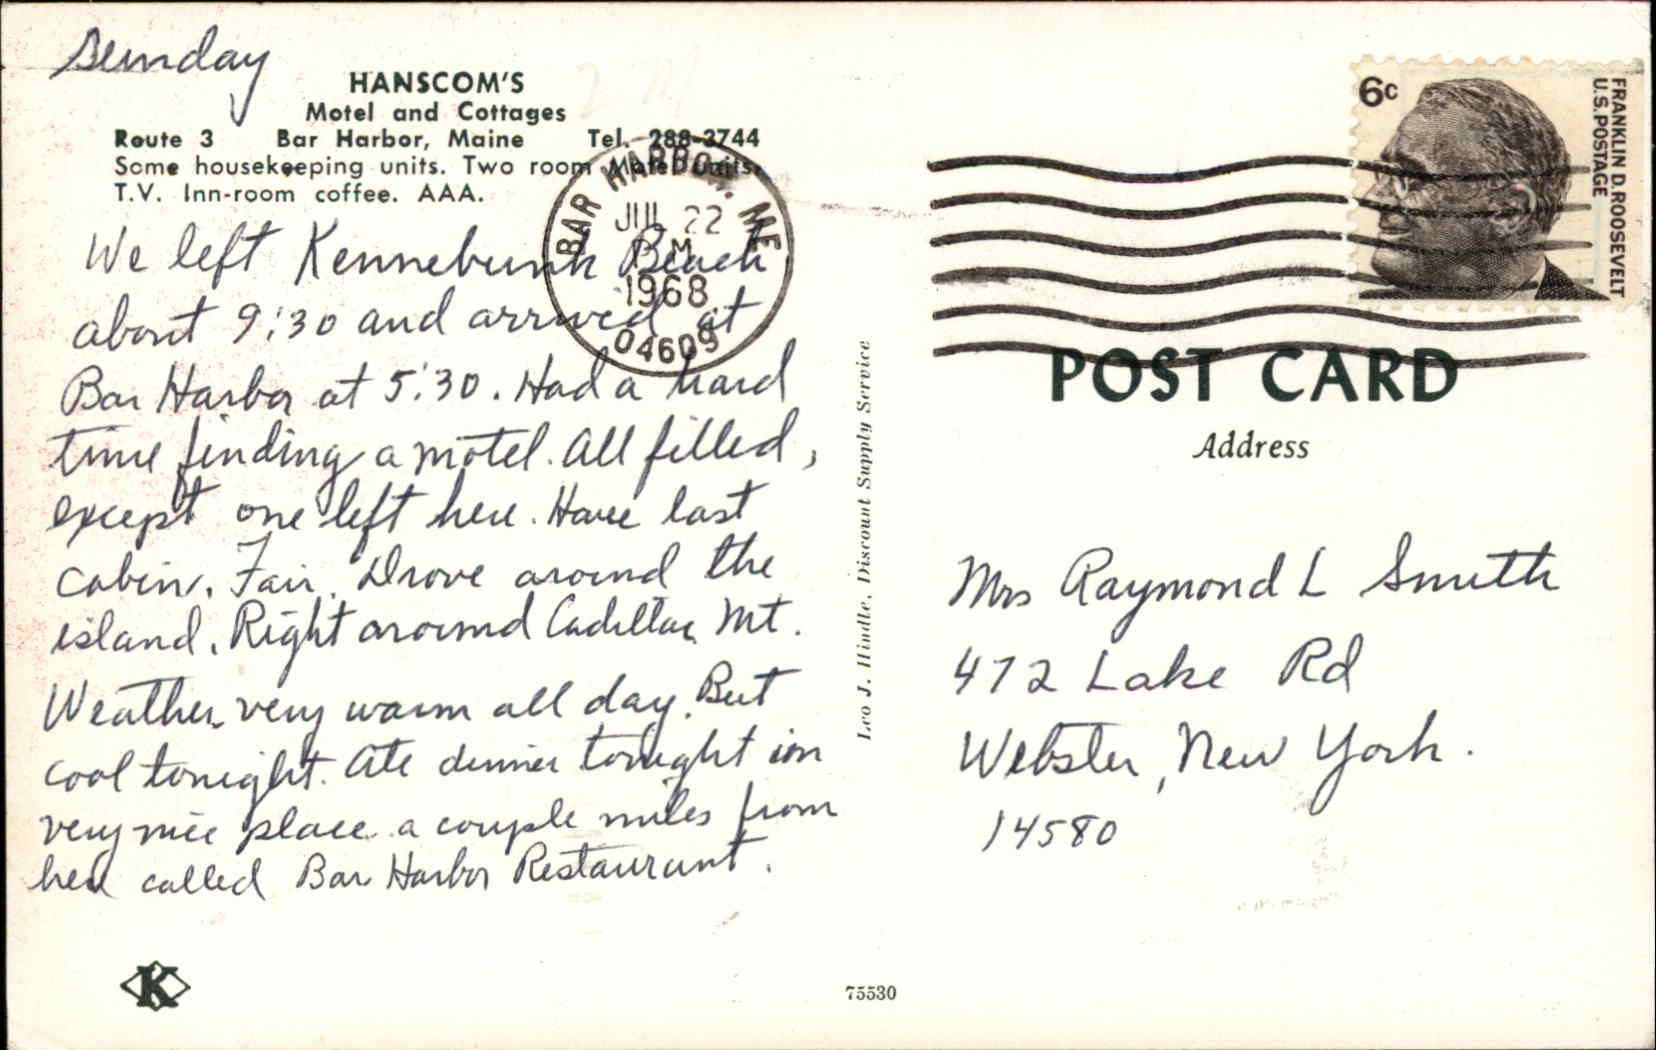 Sunday
HANSCOM'S
Motel and Cottages
Route 3 Bar Harbor, Maine Tel. 288-3744
Some housekeeping units. Two room Motel Units.
T.V. Inn-room coffee. AAA.
BAR HARBOR, ME
JUL 22
M
1968
04609
We left Kennebunk Beach
about 9:30 and arrived at
Bar Harbor at 5:30. Had a hard
time finding a motel. All filled,
except one left here. Have last
cabin. Fair. Drove around the
island. Right around Cadillac Mt.
Weather very warm all day. But
cool tonight. Ate dinner tonight in
very nice place a couple miles from
here called Bar Harbor Restaurant.
K
75530
Leo J. Hindle, Discount Supply Service
6c
FRANKLIN D. ROOSEVELT
U.S. POSTAGE
POST CARD
Address
Mrs Raymond L Smith
472 Lake Rd
Webster, New York.
14580